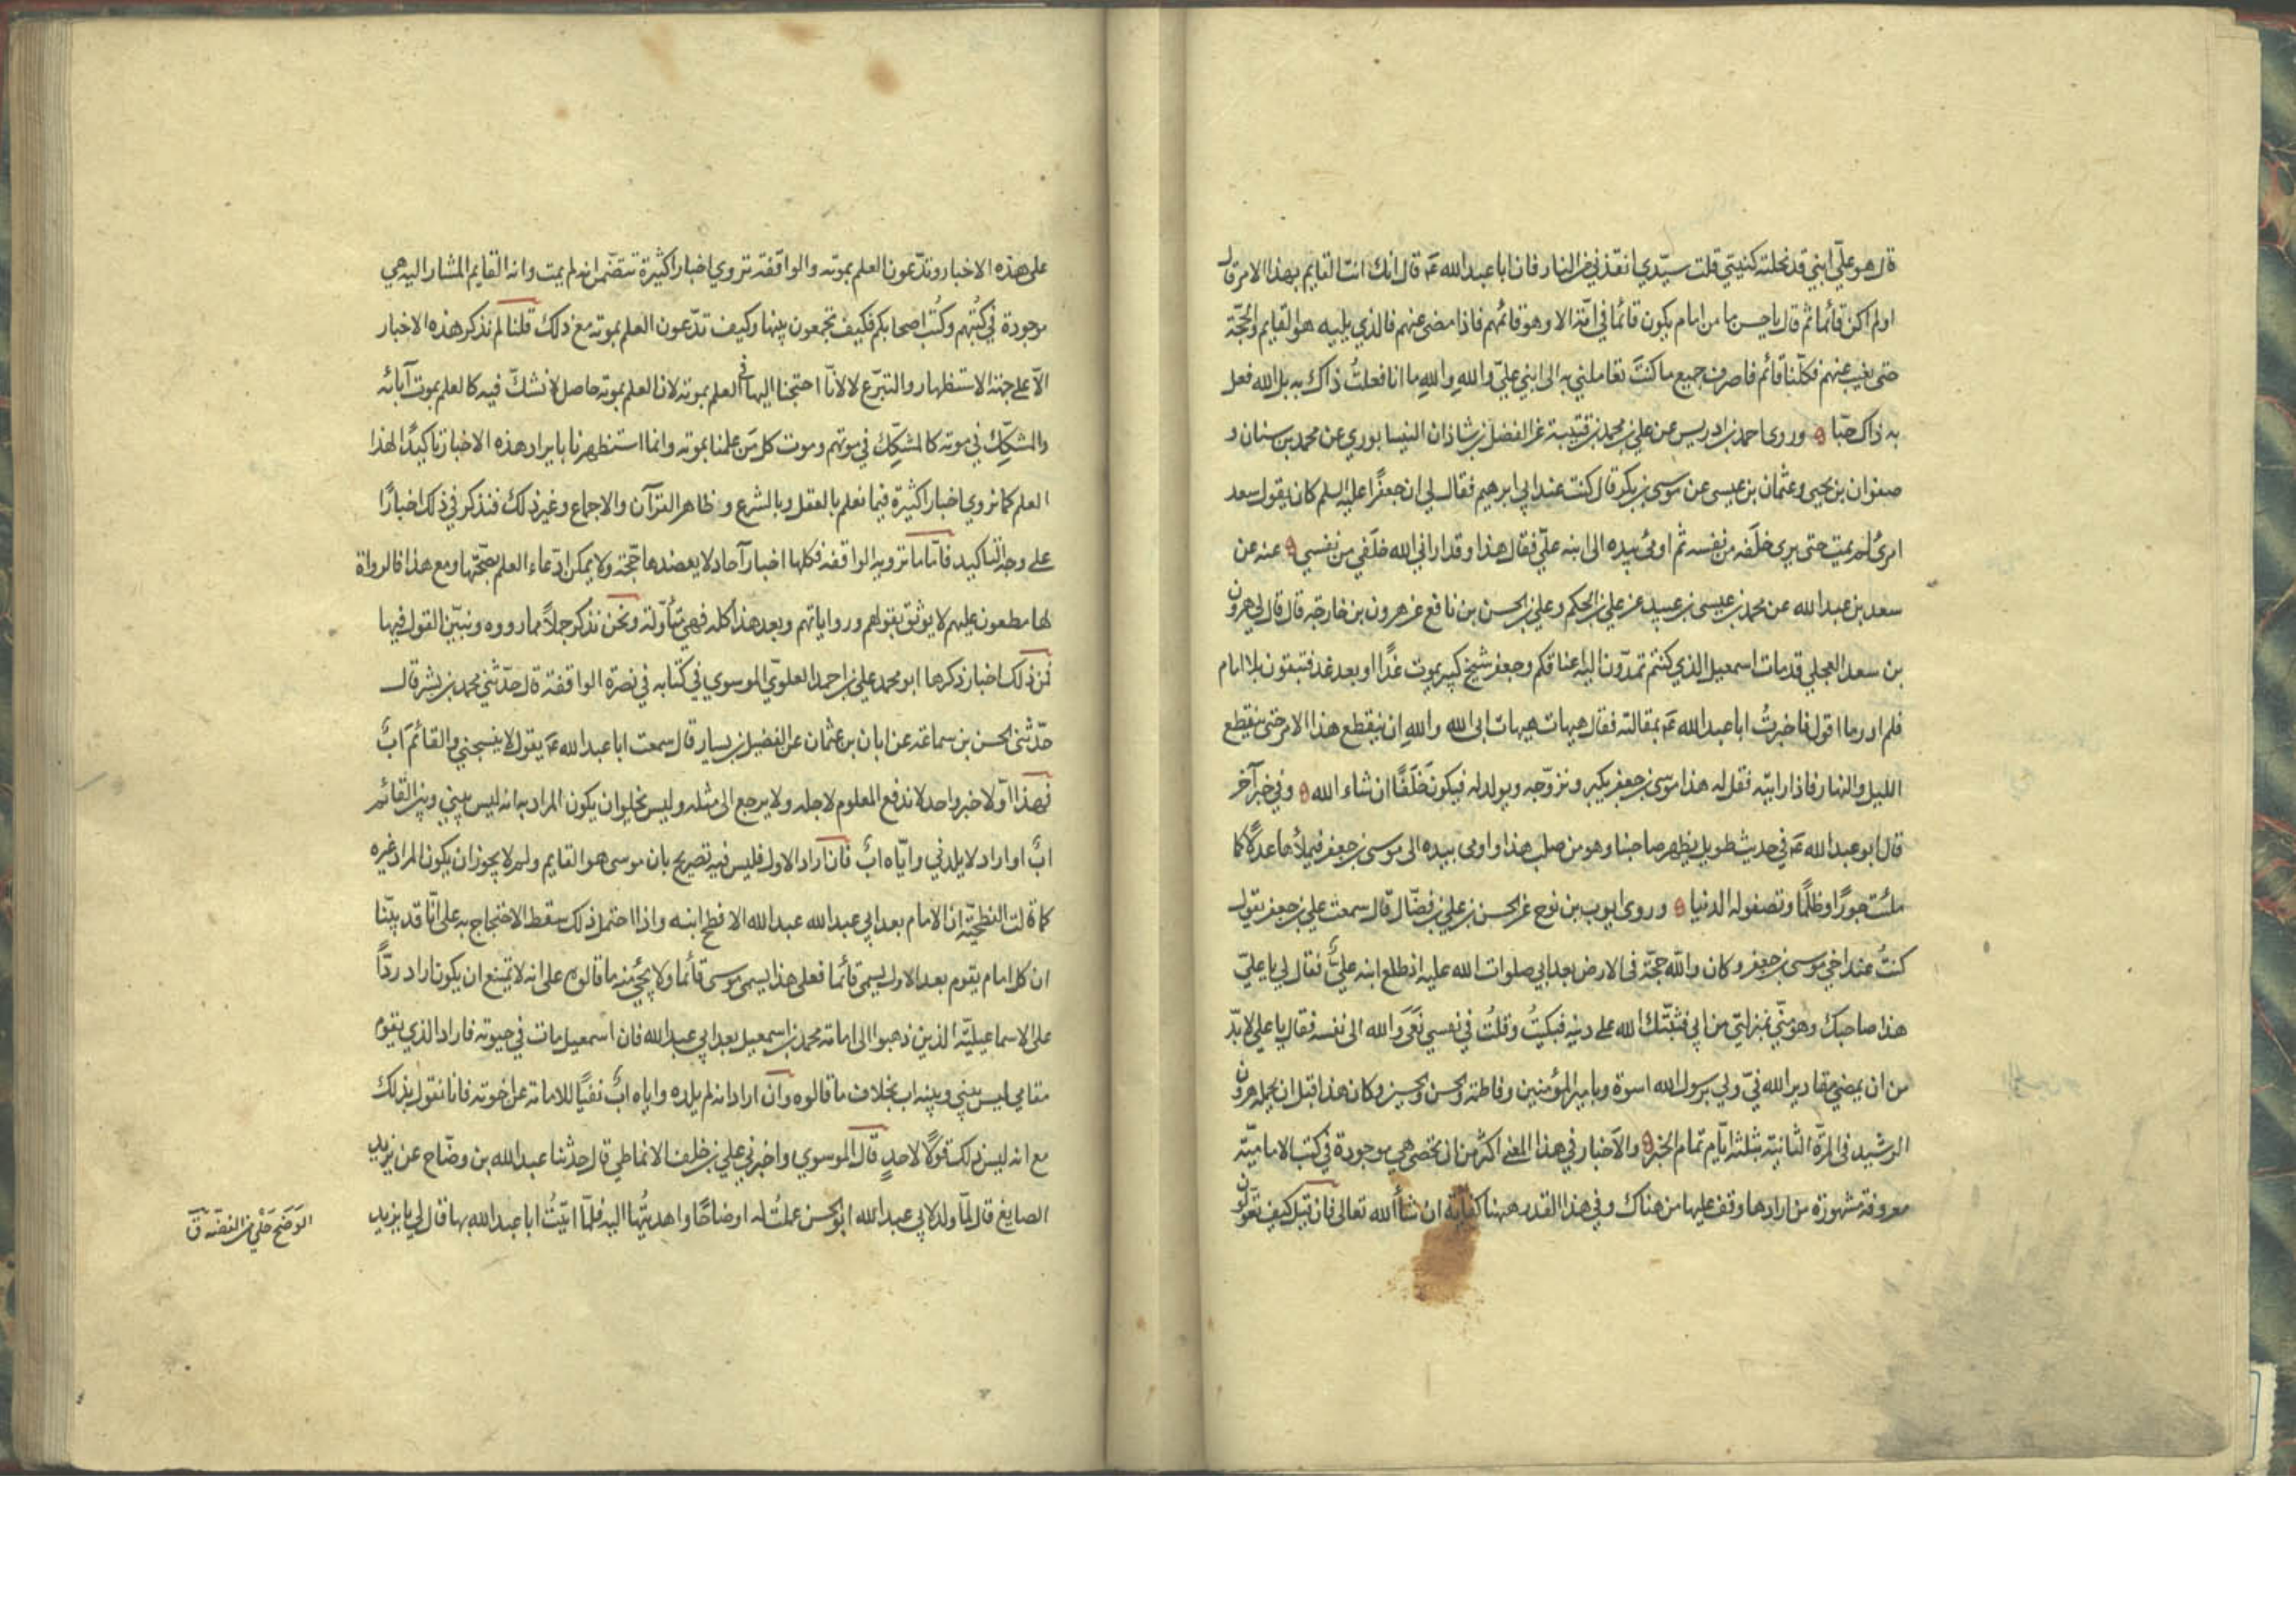 قال هو علي ابني قد نحلته كنيتي قلت سيدي انقذني من النار فان ابا عبد الله عم قال انك انت القايم بهذا الامر قال
اولم اكن قائما ثم قال يا حسن ما من امام يكون قائما في امة الا وهو قائمهم فاذا مضى عنهم فالذي يليه هو القايم والحجة
حتى يغيب عنهم فكلنا قائم فاصرف جميع ما كنت تعاملني به الى ابني علي والله والله ما انا فعلت ذاك به بل الله فعل
به ذاك حبا ه وروى احمد بن ادريس عن علي بن محمد بن قتيبة عن الفضل بن شاذان النيسابوري عن محمد بن سنان و
صفوان بن يحيى وعثمان بن عيسى عن موسى بن بكر قال كنت عند ابي ابرهيم فقال لي ان جعفرا عليه السلم كان يقول سعد
امرئ لم يمت حتى يرى خلفه من نفسه ثم اومئ بيده الى ابنه علي فقال هذا وقد اراني الله خلفي من نفسي ه عنه عن
سعد بن عبد الله عن محمد بن عيسى بن عبيد عن علي بن الحكم وعلي بن الحسن بن نافع عن هرون بن خارجة قال قال لي هرون
بن سعد العجلي قد مات اسمعيل الذي كنتم تمدون اليه اعناقكم وجعفر شيخ كبير يموت غدا او بعد غد فتبقون بلا امام
فلم ادر ما اقول فاخبرت ابا عبد الله عم بمقالته فقال هيهات هيهات ابى الله والله ان ينقطع هذا الامر حتى ينقطع
الليل والنهار فاذا رايته فقل له هذا موسى بن جعفر يكبر ونزوجه ويولد له فيكون خلفا ان شاء الله ه وفي خبر آخر
قال ابو عبد الله عم في حديث طويل يظهر صاحبنا وهو من صلب هذا واومى بيده الى موسى بن جعفر فيملأها عدلا كما
ملئت جورا وظلما وتصفو له الدنيا ه وروى ايوب بن نوح عن الحسن بن علي بن فضال قال سمعت علي بن جعفر يقول
كنت عند اخي موسى بن جعفر وكان والله حجة في الارض بعد ابي صلوات الله عليه اذ طلع ابنه علي فقال لي يا علي
هذا صاحبك وهو مني بمنزلتي من ابي فثبتك الله على دينه فبكيت وقلت في نفسي نعى والله الى نفسه فقال يا علي لا بد
من ان يمضي مقادير الله في ولي برسول الله اسوة وبامير المؤمنين وفاطمة والحسن والحسين وكان هذا قبل ان يحمله هرون
الرشيد في المرة الثانية بثلثة ايام تمام الخبر ه والاخبار في هذا المعنى اكثر من ان تحصى هي موجودة في كتب الامامية
معروفة مشهورة من ارادها وقف عليها من هناك وفي هذا القدر ههنا كفاية ان شاء الله تعالى فان قيل كيف تعولون
على هذه الاخبار وتدعون العلم بموته والواقفة تروي اخبارا كثيرة تتضمن انه لم يمت وانه القايم المشار اليه هي
موجودة في كتبهم وكتب اصحابكم فكيف تجمعون بينها وكيف تدعون العلم بموته مع ذلك قلنا لم نذكر هذه الاخبار
الا على جهة الاستظهار والتبرع لا لانا احتجنا اليها في العلم بموته لان العلم بموته حاصل لا نشك فيه كالعلم بموت آبائه
والمشكك في موته كالمشكك في موتهم وموت كل من علمنا بموته وانما استظهرنا بايراد هذه الاخبار تاكيدا لهذا
العلم كما نروي اخبارا كثيرة فيما نعلم بالعقل وبالشرع وظاهر القرآن والاجماع وغير ذلك فنذكر في ذلك اخبارا
على وجه التاكيد فاما ما ترويه الواقفة فكلها اخبار آحاد لا يعضدها حجة ولا يمكن ادعاء العلم بصحتها ومع هذا فالرواة
لها مطعون عليهم لا يوثق بقولهم ورواياتهم وبعد هذا كله فهي متأولة ونحن نذكر جملا مما رووه ونبين القول فيها
فمن ذلك اخبار ذكرها ابو محمد علي بن احمد العلوي الموسوي في كتابه في نصرة الواقفة قال حدثني محمد بن بشر قال
حدثني الحسن بن سماعة عن ابان بن عثمان عن الفضيل بن يسار قال سمعت ابا عبد الله عم يقول لا ينسجني والقائم اب
فهذا اولا خبر واحد لا ندفع المعلوم لاجله ولا يرجع الى مثله وليس يخلو ان يكون المراد به انه ليس بيني وبين القائم
اب او اراد لا يلدني واياه اب فان اراد الاول فليس فيه تصريح بان موسى هو القايم ولم لا يجوز ان يكون المراد غيره
كما قالت الفطحية ان الامام بعد ابي عبد الله عبد الله الافطح ابنه واذا احتمل ذلك سقط الاحتجاج به على انا قد بينا
ان كل امام يقوم بعد الاول يسمى قائما فعلى هذا يسمى موسى قائما ولا يجئ منه ما قالوه على انه لا يمتنع ان يكون اراد ردا
على الاسماعيلية الذين ذهبوا الى امامة محمد بن اسمعيل بعد ابي عبد الله فان اسمعيل مات في حيوته فاراد الذي يقوم
مقامي ليس بيني وبينه اب بخلاف ما قالوه وان اراد انه لم يلده واياه اب نفيا للامامة عن اخوته فانا نقول بذلك
مع انه ليس ذلك قولا لاحد قال الموسوي واخبرني علي بن خلف الانماطي قال حدثنا عبد الله بن وضاح عن يزيد
الصايغ قال لما ولد لابي عبد الله ابو الحسن عملت له اوضاحا واهديتها اليه فلما اتيت ابا عبد الله بها قال لي يا يزيد
الوضح حلي من الفضة ق